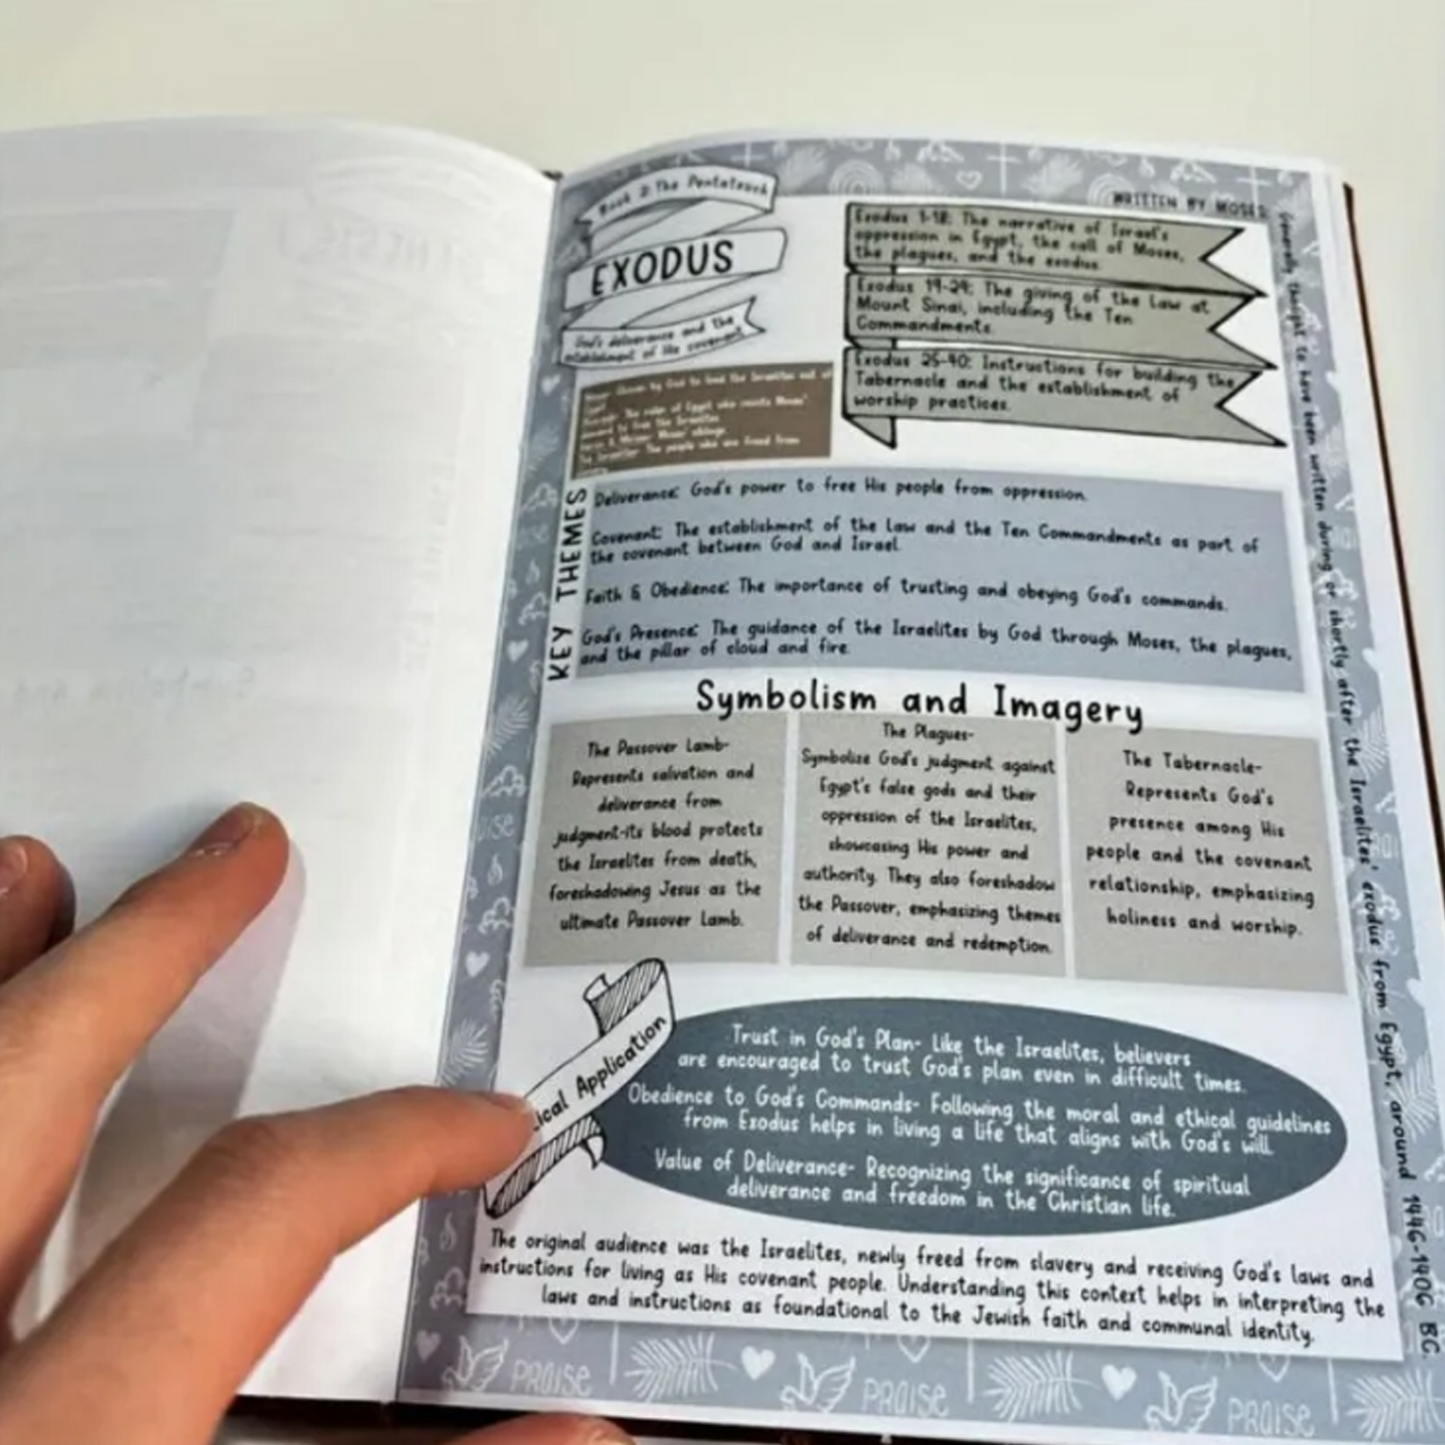 Book 2: The Pentateuch
EXODUS
God's deliverance and the
establishment of His covenant
WRITTEN BY MOSES
Exodus 1-18: The narrative of Israel's
oppression in Egypt, the call of Moses,
the plagues, and the exodus.
Exodus 19-24: The giving of the Law at
Mount Sinai, including the Ten
Commandments.
Exodus 25-40: Instructions for building the
Tabernacle and the establishment of
worship practices.
Moses: Chosen by God to lead the Israelites out of
Egypt.
Pharaoh: The ruler of Egypt who resists Moses'
demand to free the Israelites
Aaron & Miriam: Moses' siblings
The Israelites: The people who are freed from
KEY THEMES
Deliverance: God's power to free His people from oppression.
Covenant: The establishment of the Law and the Ten Commandments as part of
the covenant between God and Israel.
Faith & Obedience: The importance of trusting and obeying God's commands.
God's Presence: The guidance of the Israelites by God through Moses, the plagues,
and the pillar of cloud and fire.
Symbolism and Imagery
The Passover Lamb-
Represents salvation and
deliverance from
judgment-its blood protects
the Israelites from death,
foreshadowing Jesus as the
ultimate Passover Lamb.
The Plagues-
Symbolize God's judgment against
Egypt's false gods and their
oppression of the Israelites,
showcasing His power and
authority. They also foreshadow
the Passover, emphasizing themes
of deliverance and redemption.
The Tabernacle-
Represents God's
presence among His
people and the covenant
relationship, emphasizing
holiness and worship.
ical Application
Trust in God's Plan- Like the Israelites, believers
are encouraged to trust God's plan even in difficult times.
Obedience to God's Commands- Following the moral and ethical guidelines
from Exodus helps in living a life that aligns with God's will.
Value of Deliverance- Recognizing the significance of spiritual
deliverance and freedom in the Christian life.
The original audience was the Israelites, newly freed from slavery and receiving God's laws and
instructions for living as His covenant people. Understanding this context helps in interpreting the
laws and instructions as foundational to the Jewish faith and communal identity.
Generally thought to have been written during or shortly after the Israelites' exodus from Egypt, around 1446-1406 BC.
PRAISE PRAISE PRAISE